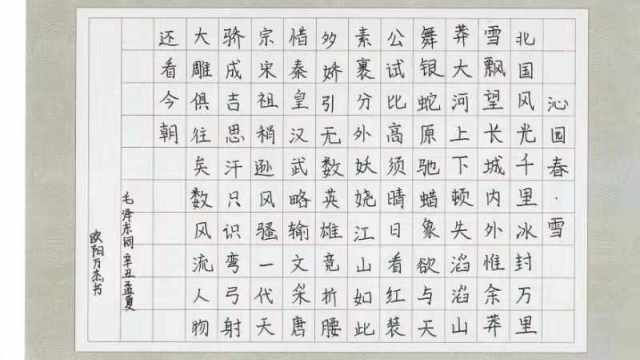 沁园春·雪
北国风光千里冰封万里
雪飘望长城内外惟余莽
莽大河上下顿失滔滔山
舞银蛇原驰蜡象欲与天
公试比高须晴日看红装
素裹分外妖娆江山如此
多娇引无数英雄竟折腰
惜秦皇汉武略输文采唐
宗宋祖稍逊风骚一代天
骄成吉思汗只识弯弓射
大雕俱往矣数风流人物
还看今朝
毛泽东词辛丑孟夏
欧阳书